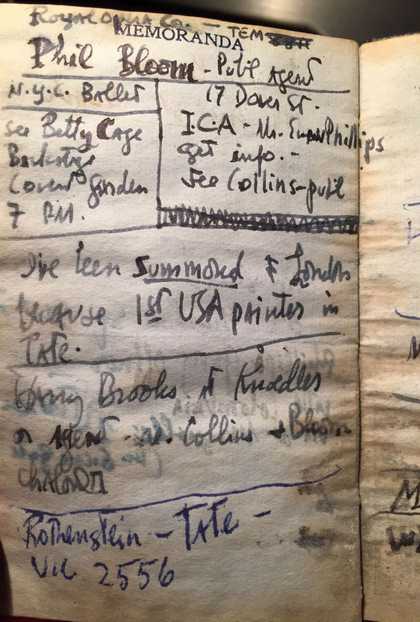 ROYAL OPERA Co. — TEM
MEMORANDA
Phil Bloom - Publ Agent
N.Y.C. Ballet
see Betty Cage
Backstage
Covent Garden
7 P.M.
17 Dover St.
I.C.A - Mr. Ewan Phillips
get info. -
See Collins - publ
I've been summoned to London
because 1st USA painter in
Tate.
Harry Brooks at Knoedler
or agent - Collins +
Rothenstein - TATE -
Vic 2556